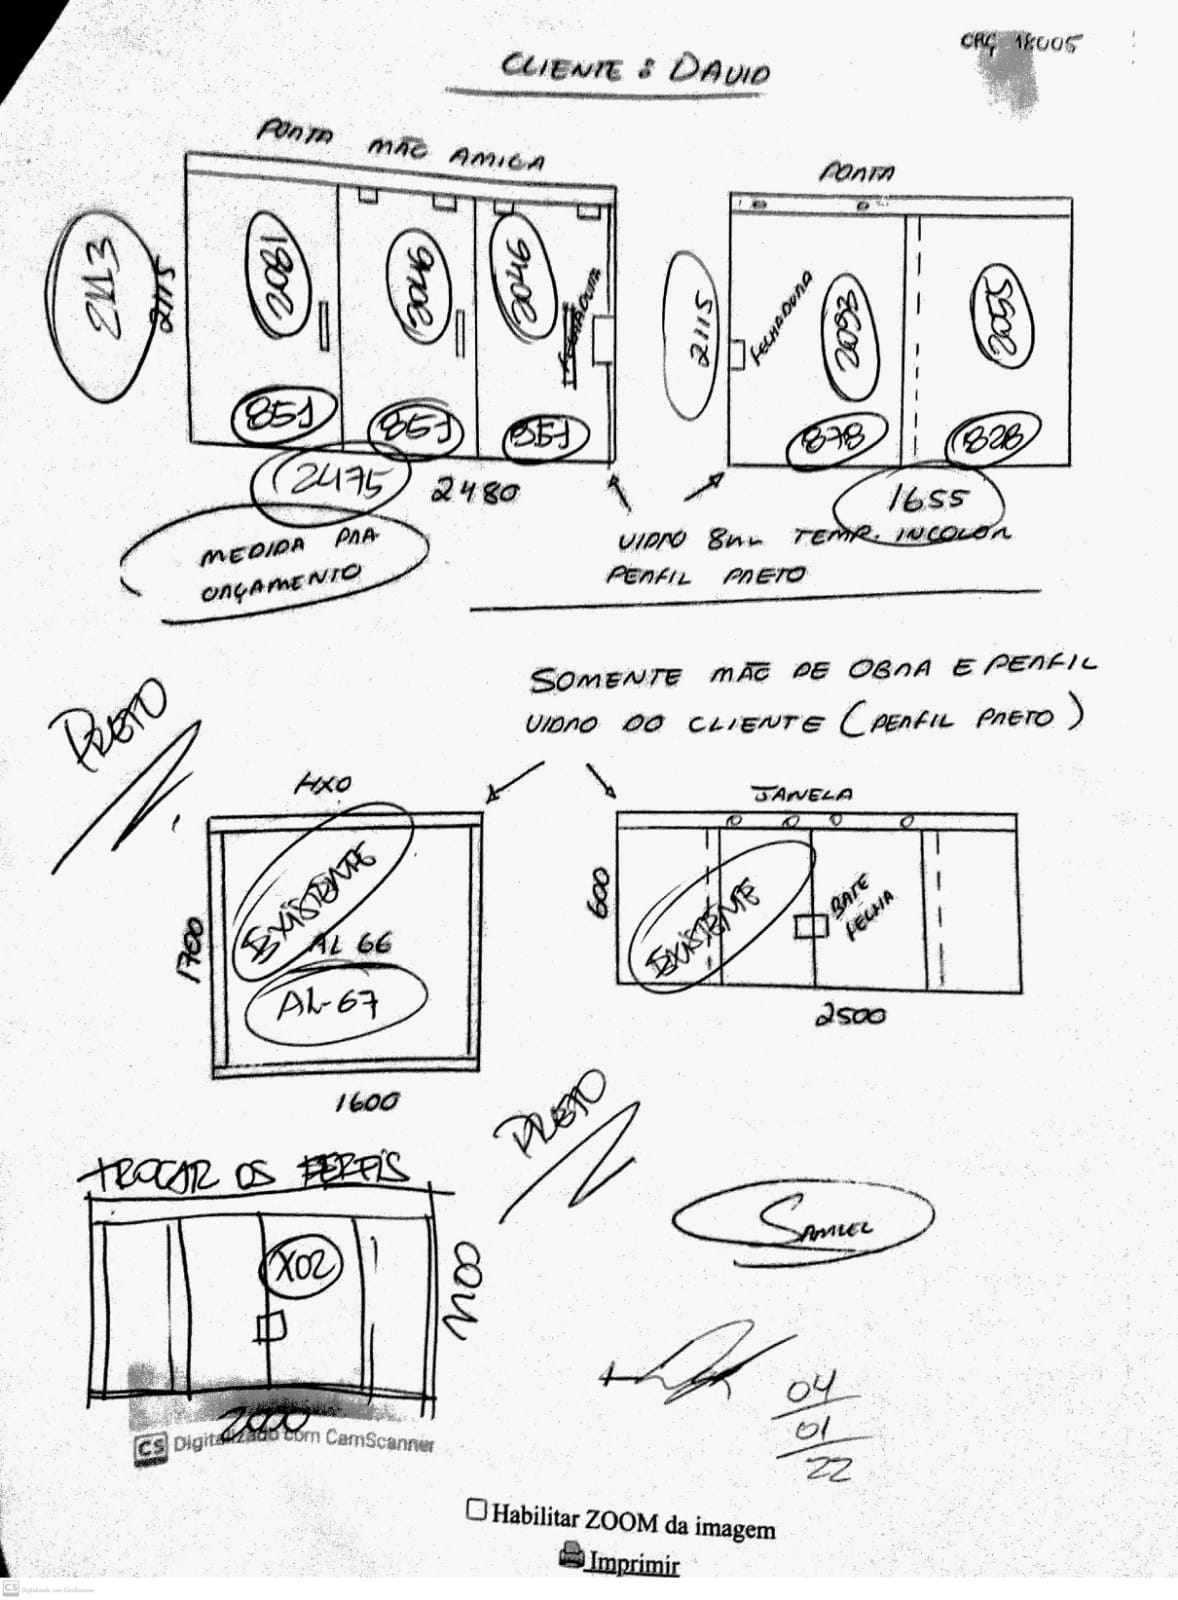 ORÇ 18005
CLIENTE: DAVID
PORTA MÃO AMIGA
PORTA
2113
2115
2081
2046
2046
FECHADURA
851
851
851
2475
2480
MEDIDA PRA
ORÇAMENTO
2115
FECHADURA
2093
2055
878
828
1655
VIDRO 8mm TEMP. INCOLOR
PERFIL PRETO
SOMENTE MÃO DE OBRA E PERFIL
VIDRO DO CLIENTE (PERFIL PRETO)
PRETO
FIXO
EXISTENTE
AL 66
AL-67
1700
1600
JANELA
600
EXISTENTE
BATE
FECHA
2500
PRETO
TROCAR OS PERFIS
X02
2000
SAMUEL
04
01
22
CS Digitalizado com CamScanner
Habilitar ZOOM da imagem
Imprimir
CS Digitalizado com CamScanner